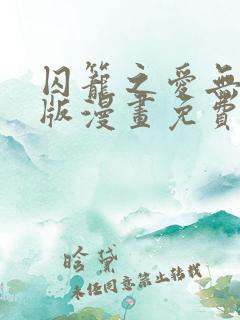 囚籠之愛無
版漫畫免費
晗黛
未经同意禁止转载